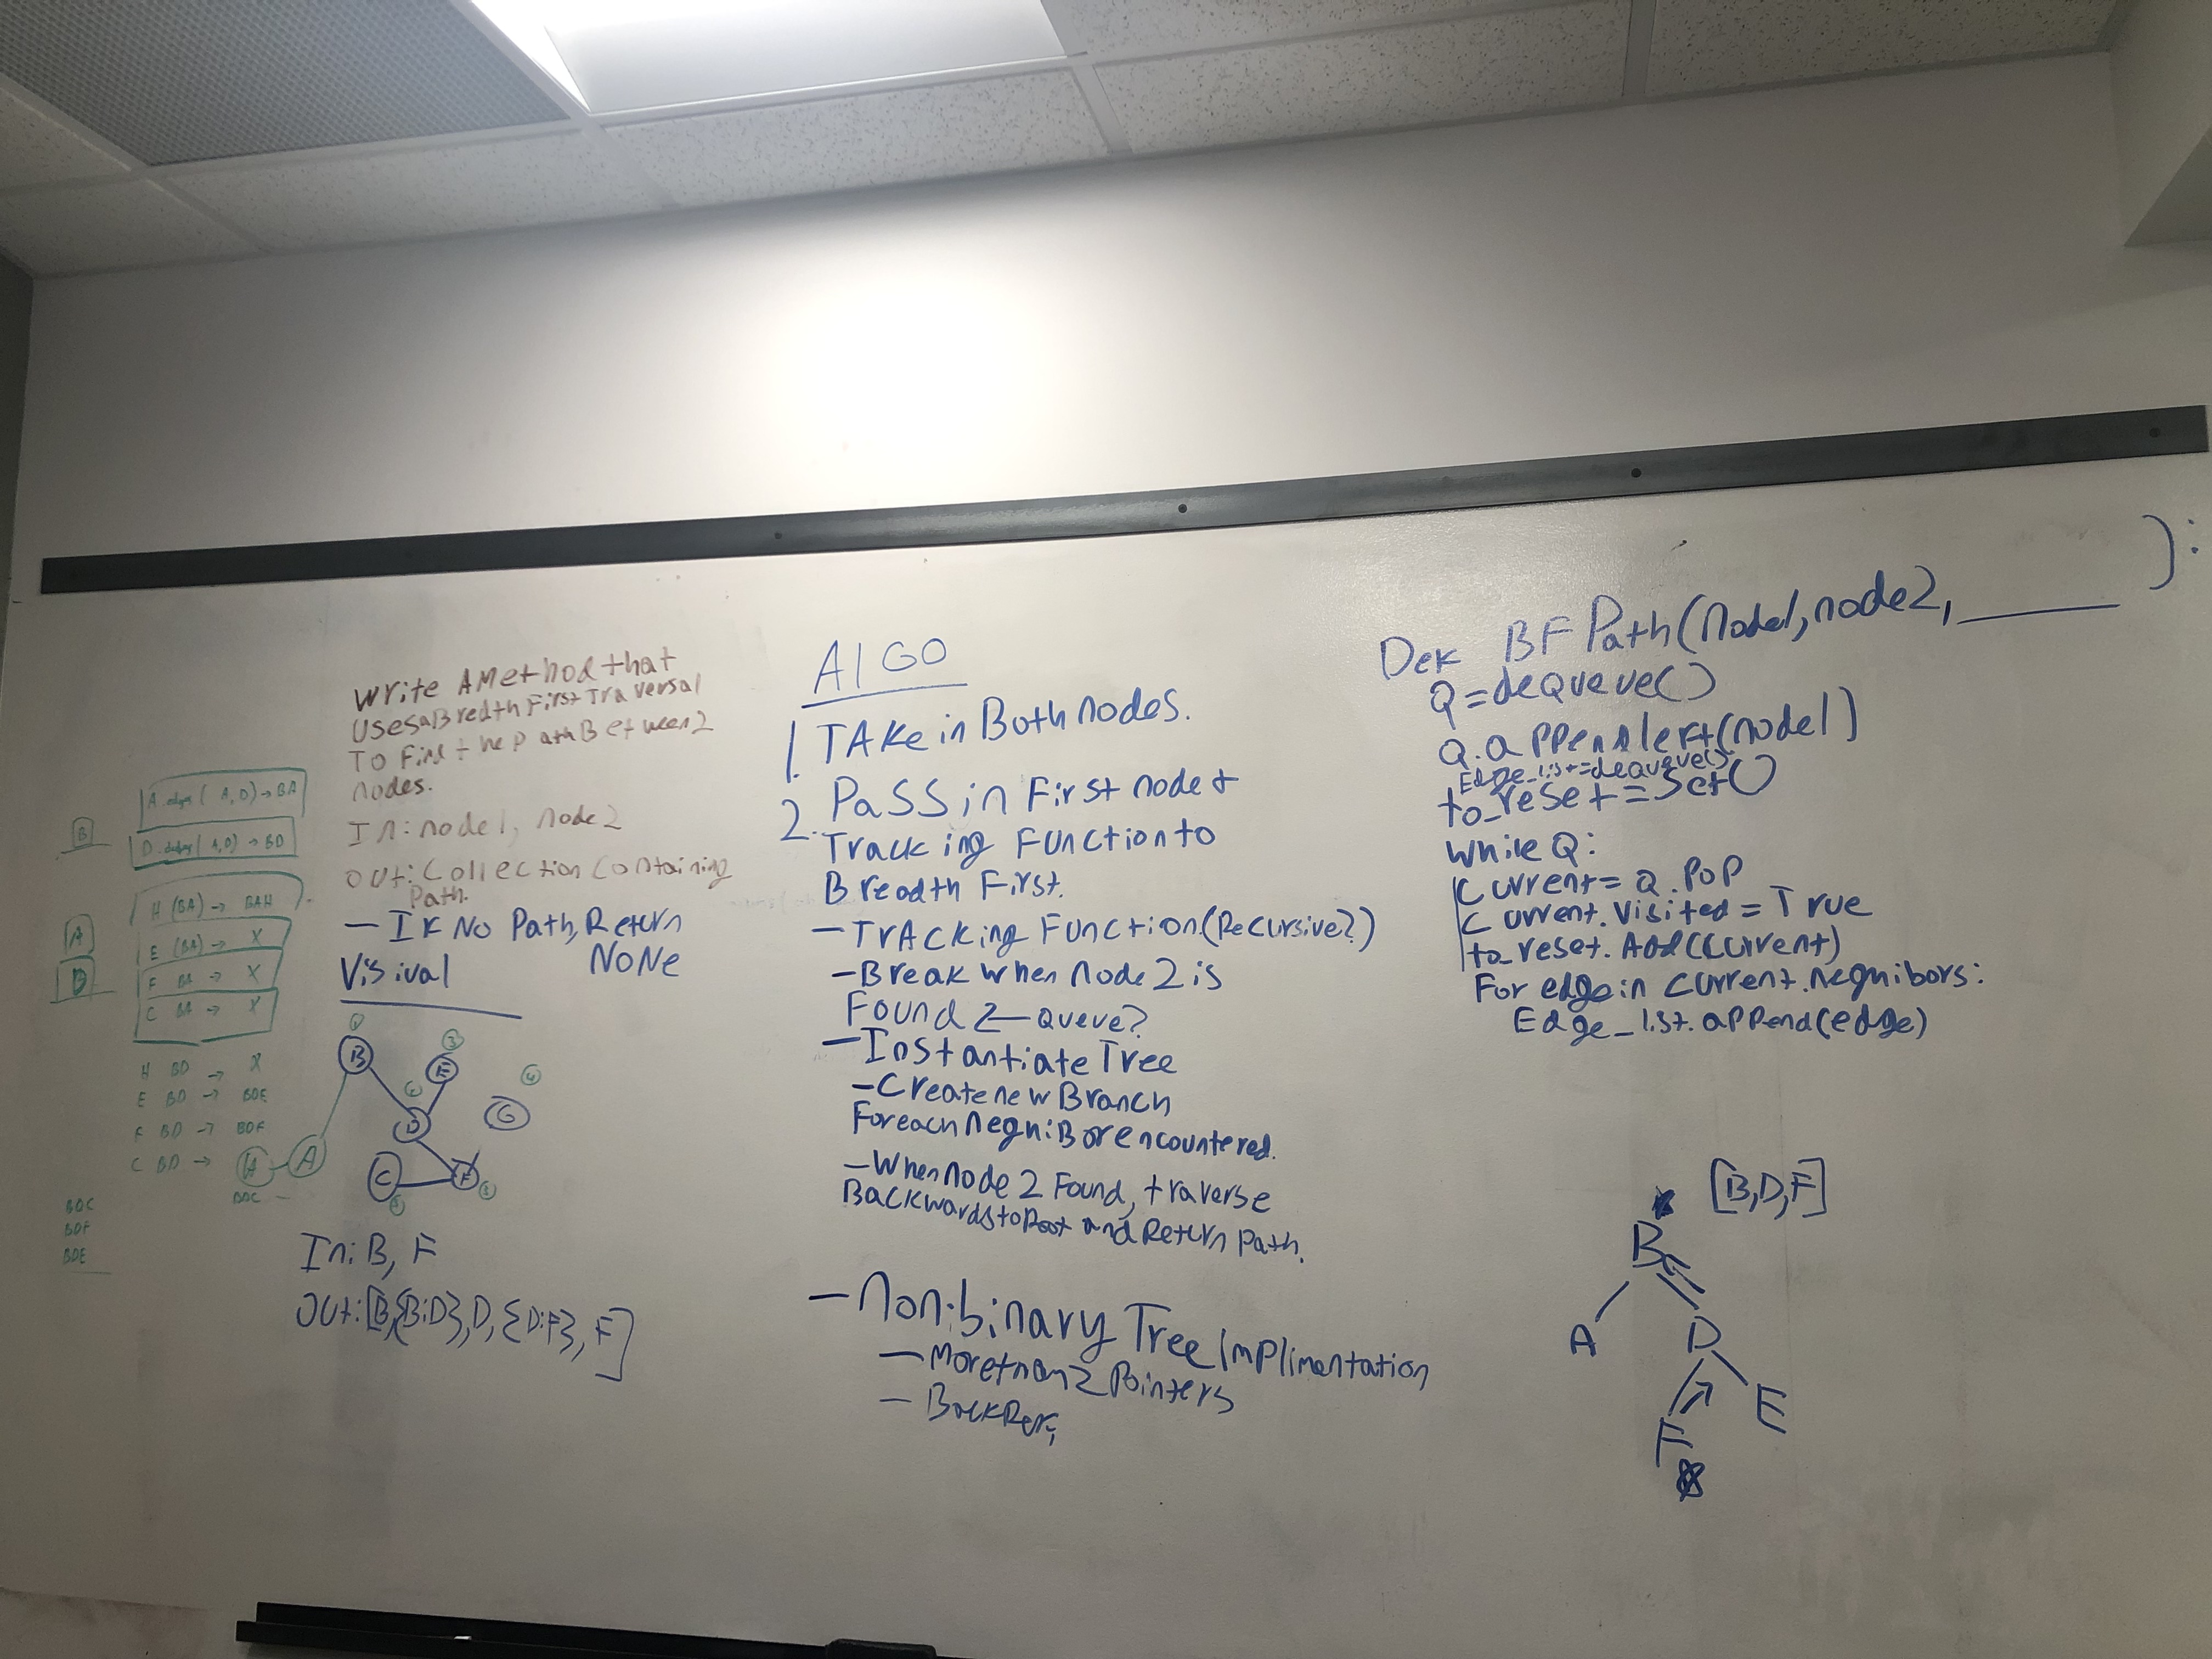 A.edges (A,D) → BA
B
D.edges (A,D) → BD
H (BA) → BAH
A
E (BA) → X
D
F BA → X
C BA → X
H BD → X
E BD → BDE
F BD → BDF
C BD →
BDC
BDC
BDF
BDE
Write A Method that
Uses a Bredth First Traversal
To Find the Path Between 2
nodes.
In: node1, node2
Out: Collection Containing
Path.
- If No Path, Return
NONE
Visival
B
E
D
G
H
A
C
F
In: B, F
Out: [B,{B:D},D,{D:F},F]
AlGO
1. TAKe in Both nodes.
2. Pass in First node +
Tracking Function to
Breadth First.
- TrAcking Function (Recursive?)
- Break when node 2 is
Found 2 - Queue?
- Instantiate Tree
- Create new Branch
For each neghiBor encountered.
- When node 2 Found, traverse
Backwards to Root and Return Path.
- Non-binary Tree Implimentation
- More than 2 Pointers
- Back
Def BFPath(node1, node2, ______ ):
Q = deQueue()
Q.appendleft(node1)
Edge_list = dequeue()
to_reset = Set()
While Q:
Current = Q.POP
Current.Visited = True
to_reset.Add(Current)
For edge in Current.neghibors:
Edge_list.append(edge)
[B,D,F]
B
A
D
F
E